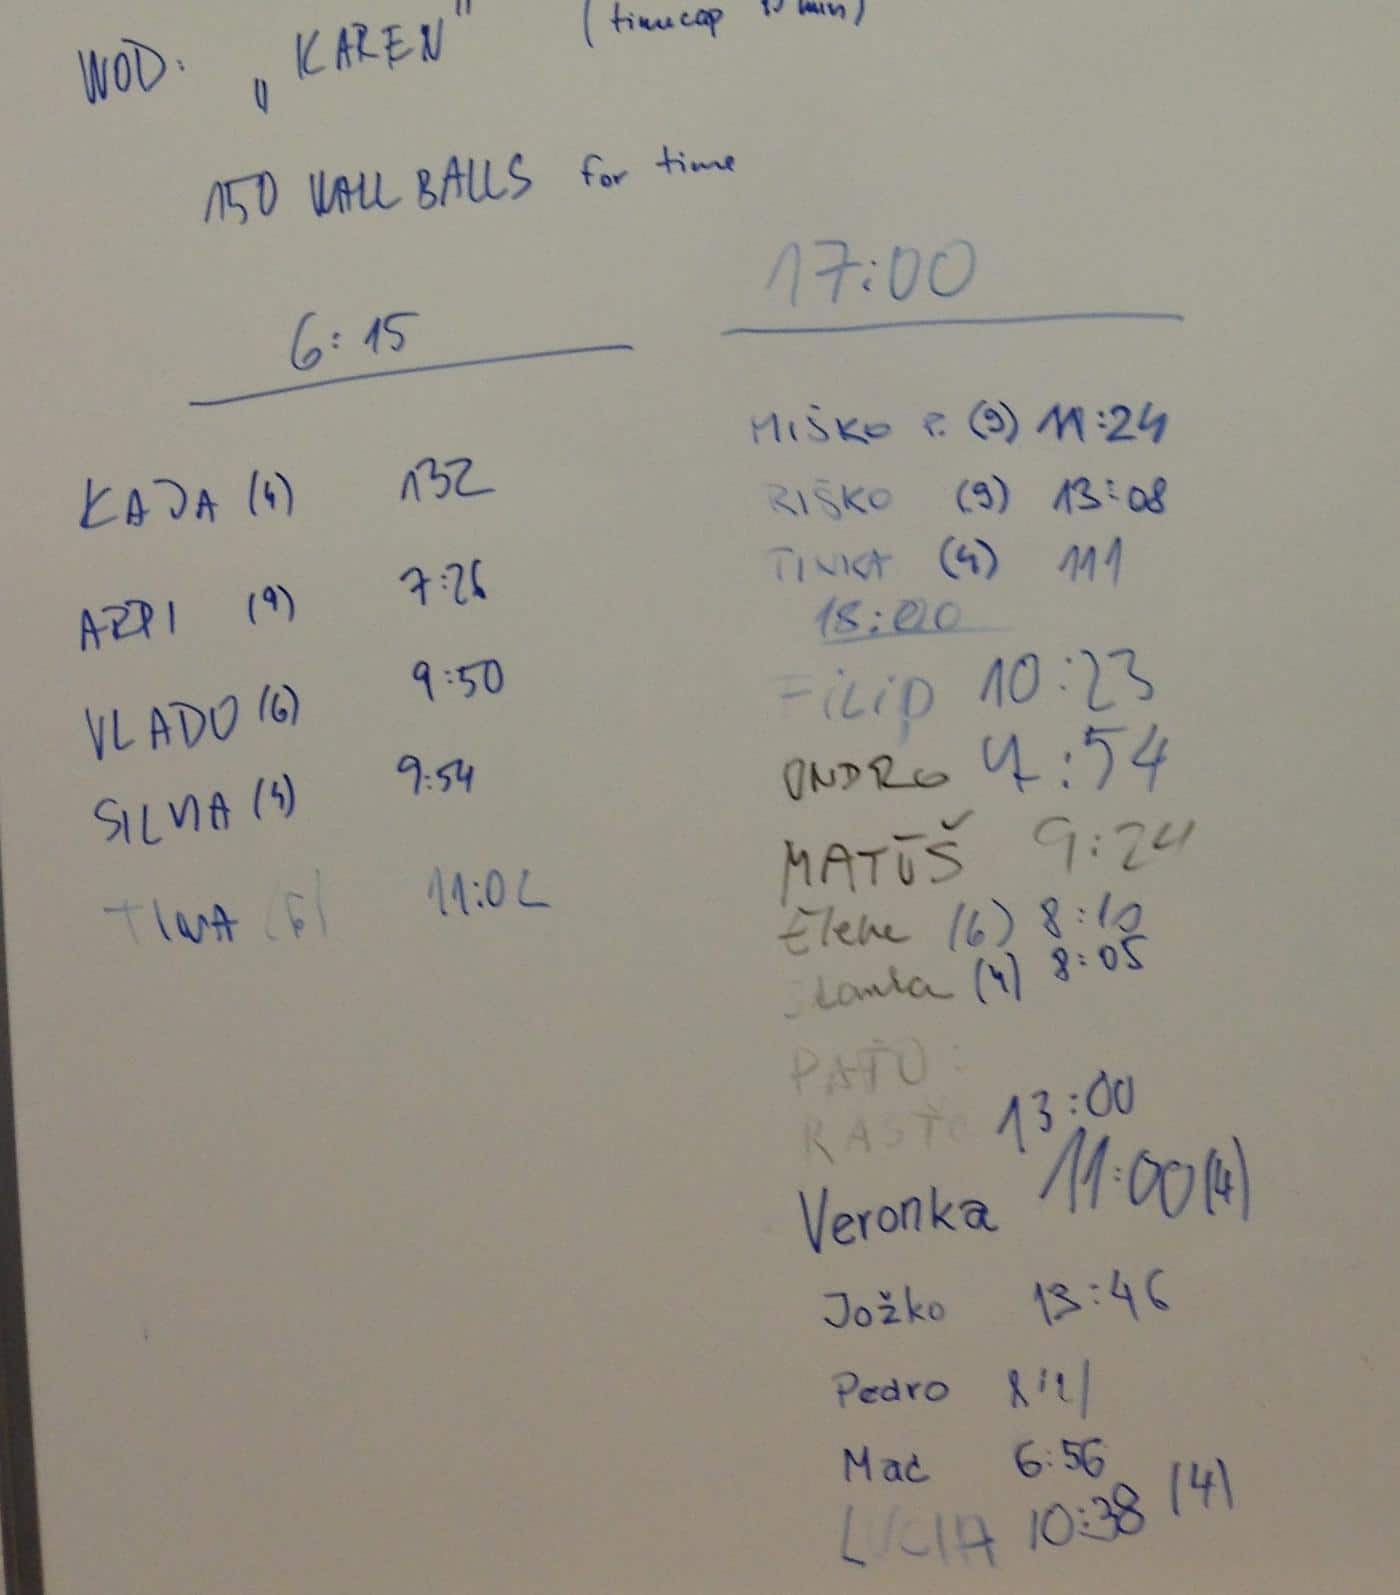 WOD: „KAREN" (timecap min)
150 WALL BALLS for time
6:15
KAJA (4) 132
ARPI (9) 7:26
VLADO (6) 9:50
SILVIA (4) 9:54
11:02
17:00
MIŠKO P. (9) 11:24
RIŠKO (9) 13:08
TINKA (4) 111
18:00
FILIP 10:23
ONDRO 7:54
MATÚŠ 9:24
(6) 8:10
(4) 8:05
PAŤO:
RASŤO 13:00
Veronka 11:00 (4)
Jožko 13:46
Pedro
Mac 6:56
LUCIA 10:38 (4)